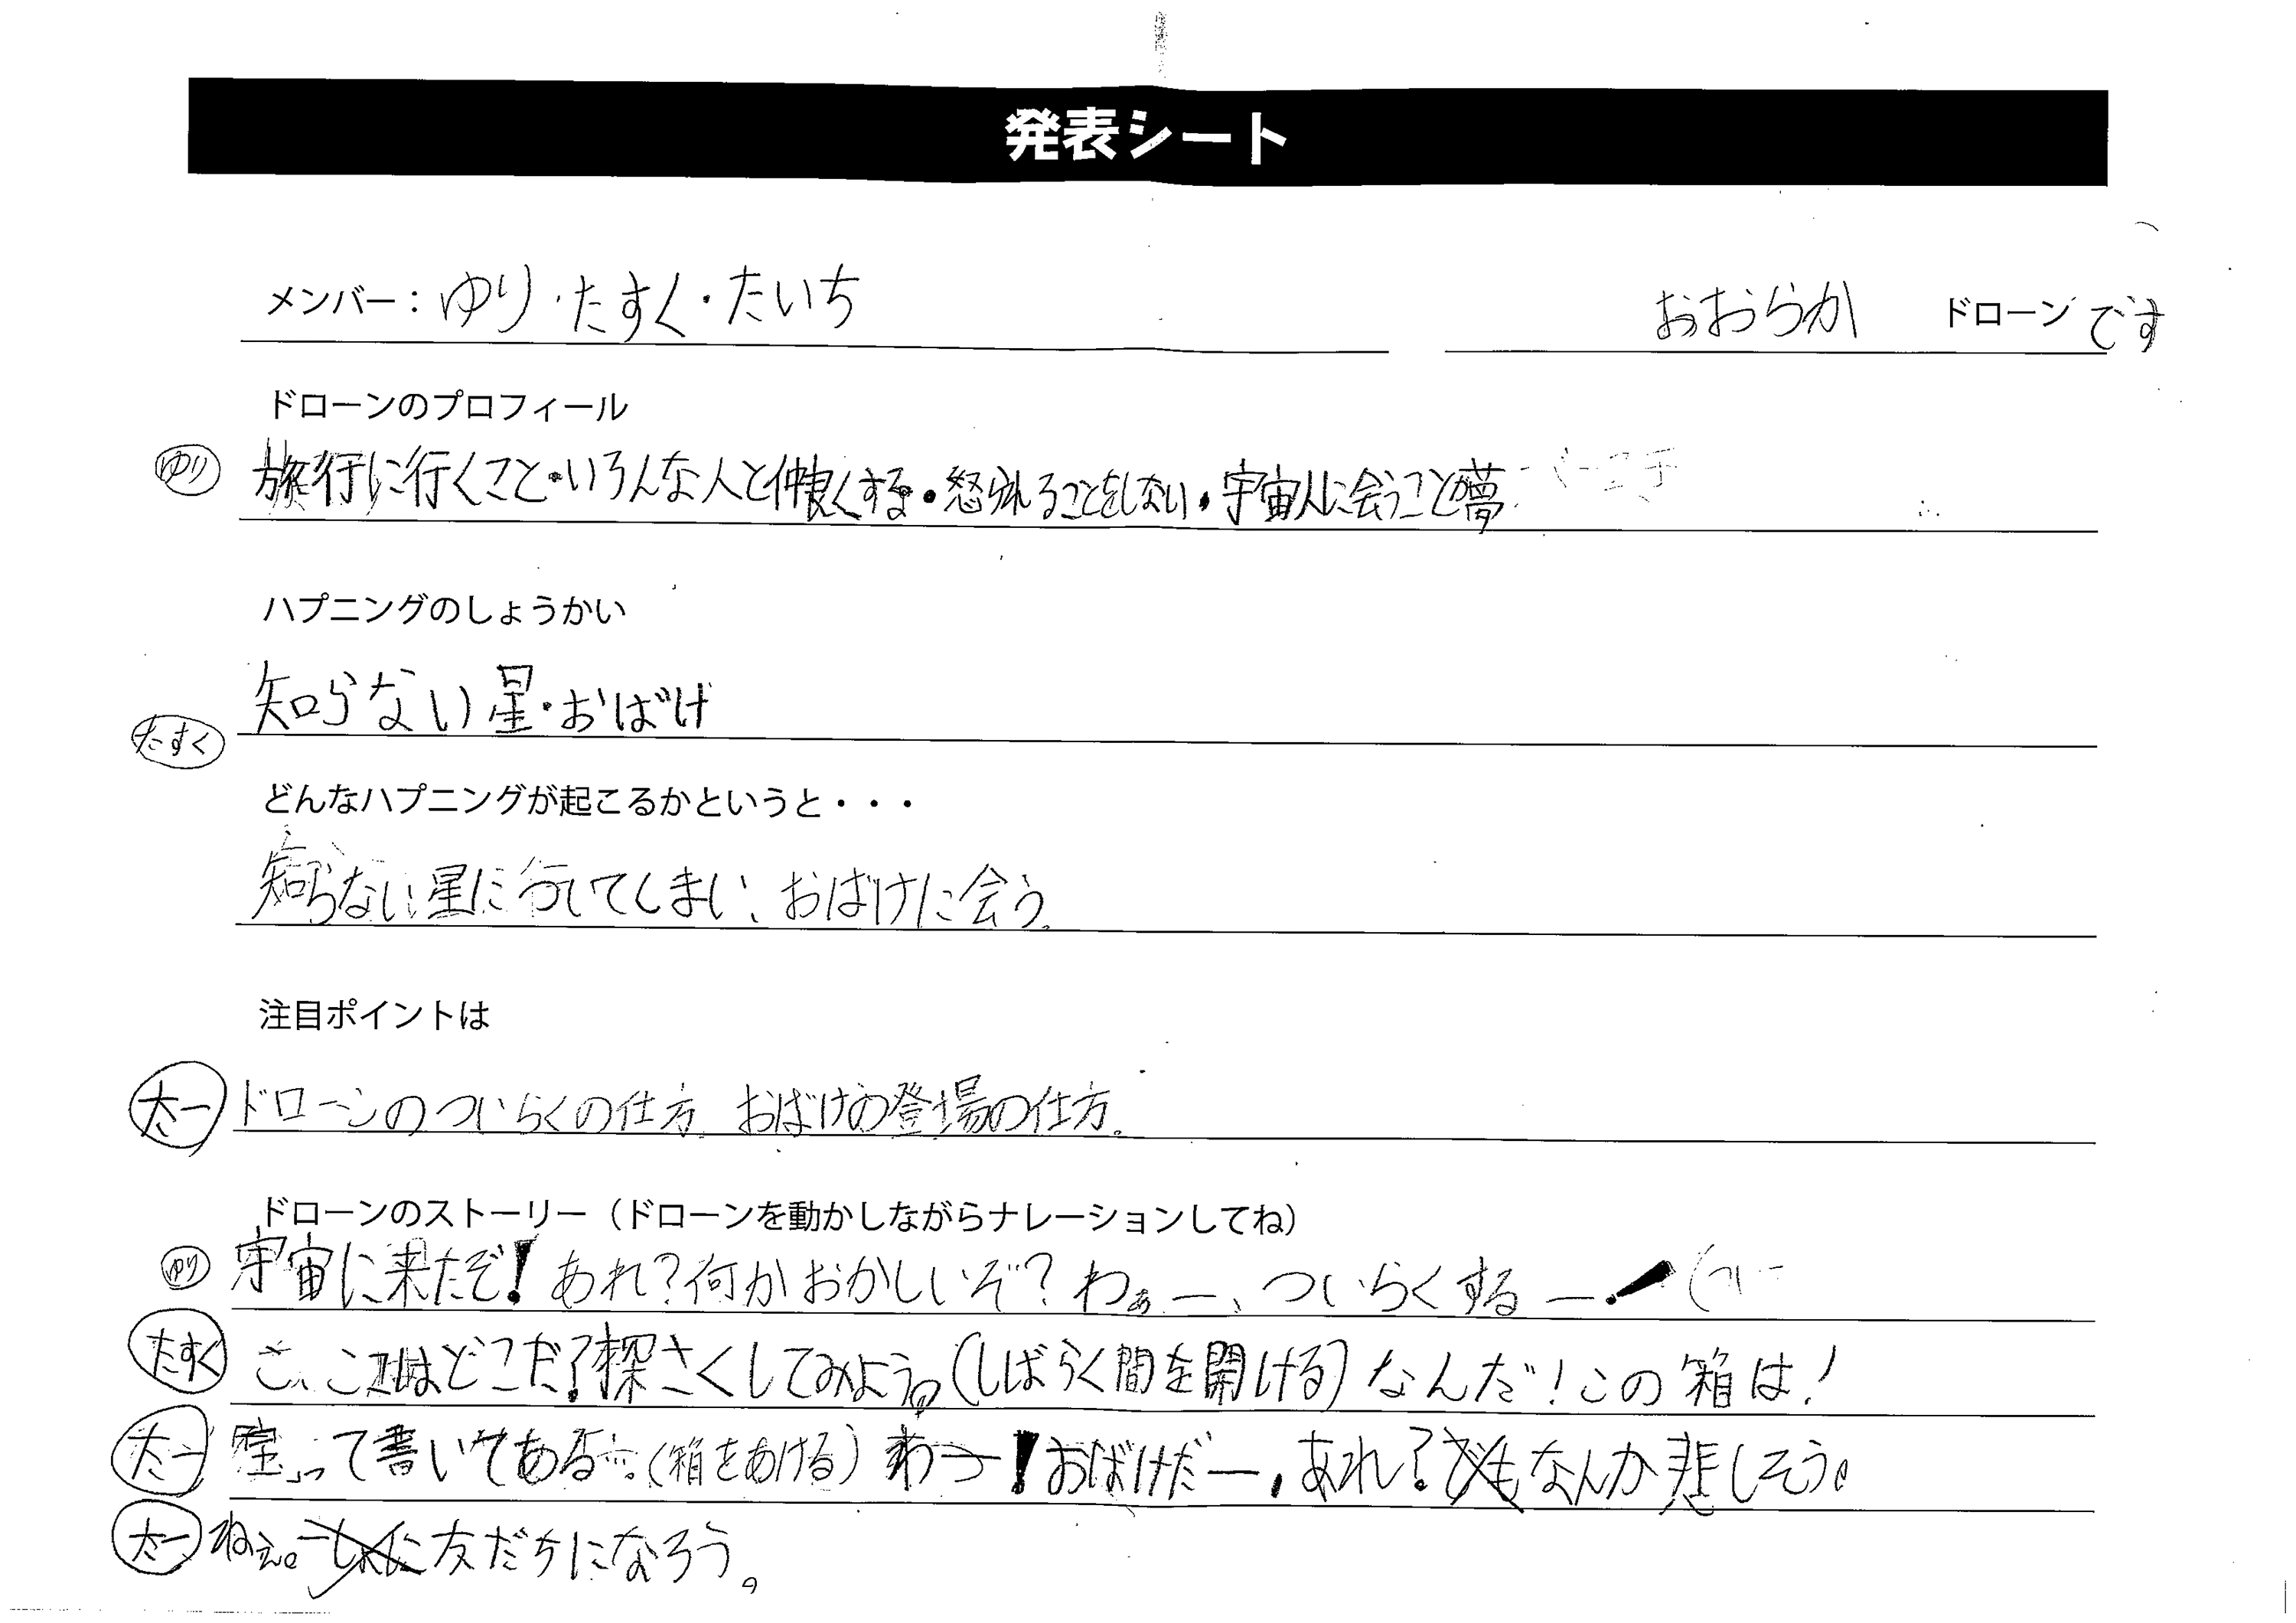 発表シート
メンバー：ゆり・たすく・たいち　おおらか ドローンです
ドローンのプロフィール
ゆり 旅行に行くこと・いろんな人と仲良くする・怒られることをしない・宇宙人に会うことが夢
ハプニングのしょうかい
知らない星・おばけ
たすく
どんなハプニングが起こるかというと・・・
知らない星に行ってしまい、おばけに会う。
注目ポイントは
太一 ドローンのついらくの仕方。おばけの登場の仕方。
ドローンのストーリー（ドローンを動かしながらナレーションしてね）
ゆり 宇宙に来たぞ！あれ？何かおかしいぞ？わぁー、ついらくするー！
たすく こ、ここはどこだ？探さくしてみよう。（しばらく間を開ける）なんだ！この箱は！
太一 って書いてある（箱をあける）わっー！おばけだー。あれ？なんか悲しそう。
太一 ねぇ。友だちになろう。